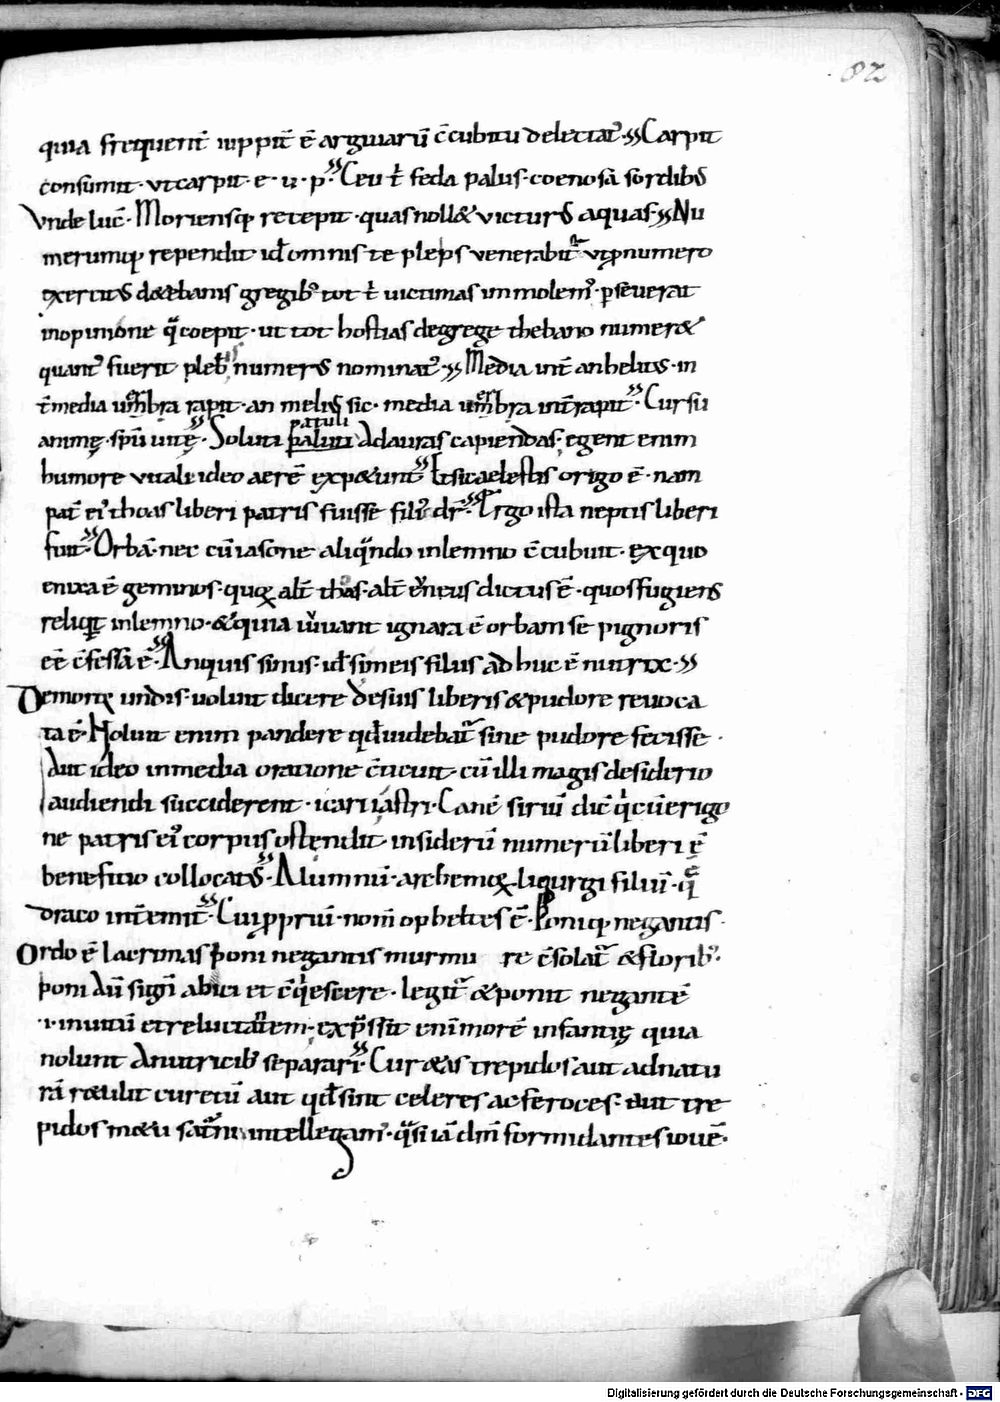 82
quia frequent̄ iuppit̄ ē arguiarū c̄cubitu delectat᷒. Carpit
consumit · ut carpit · e · u · p᷒ · Ceu t̄ feda palus · coenosā sordib᷒
Vnde luc̄ · Moriensq; recepit · quas noll& victur᷒ aquas · Nu
merumq; rependit id̄ omnis te pleps venerabit᷒ ut p numero
exercit᷒ d& ebanis gregib᷒ tot t̄ uictimas immolem᷒ · pseuerat
inopinione q̄ coepit · ut tot hostias degrege thebano numer&
quant᷒ fuerit pleb᷒ numer᷒ nominat᷒ · Media int̄ anhelit᷒ · in
t̄media umbra rapit · an meli᷒ sic · media umbra int̄rapit᷒ · Cursū
animę · sp̄u uitę · Soluti patuli paluti Adauras capiendas · egent enim
humore vitali ideo aerē exp&unt᷒ caelestis origo ē · nam
pat̄ ei᷒ thoas liberi patris fuisse fili᷒ dr̄ · Ergo ista neptis liberi
fuit · Orbā · nec cū iasone aliqn̄do inlemno c̄cubuit · ex quo
enixa ē geminos · quoꝝ alt̄ thas · alt̄ dictus ē · quos fugiens
reliqt inlemno · & quia uiuant ignara ē orbam se pignoris
eē c̄fessa ē · Anquis sinus · id̄ simeis filius adhuc ē nutrix ·
Demorꝝ undis · uoluit dicere desuis liberis & pudore reuoca
ta ē · Noluit enim pandere qd̄ uidebat᷒ sine pudore fecisse ·
Aut ideo inmedia oratione c̄ticuit · cū illi magis desiderio
audiendi succiderent · icarii astri · Canē siriū dic̄ qi cū erigo
ne patris ei᷒ corpus ostendit insiderū numerū liberi ē
beneficio collocat᷒ · Alumnū · archemoꝝ · ligurgi filiū · q̄
draco int̄emit᷒ · Cui p priū · nom̄ opheltes ē · Poniq; negantis ·
Ordo ē lacrimas poni negantis murmu re c̄solat᷒ & florib᷒ ·
poni dū sign̄ abici et c̄qescere · legit᷒ & ponit negantē
· i · inuitū et reluctantem · exp̄ssit enī morē infantię quia
nolunt Anutricib᷒ separari · Cur&as trepidos aut adnatu
rā r&ulit curetū aut qd̄ sint celeres ac feroces · aut tre
pidos m&u saturni intellegam᷒ · q̄si iā dm̄ formidantes ioue ·
Digitalisierung gefördert durch die Deutsche Forschungsgemeinschaft - DFG